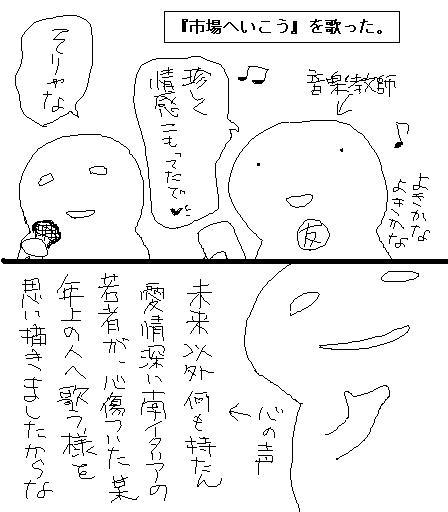 『市場へいこう』を歌った。
音楽教師
よきかな
よきかな
友
珍しく
情感こもってたで
そりゃな
心の声
未来以外何も持たん
愛情深い南イタリアの
若者が、心傷ついた某
年上の人へ歌う様を
思い描きましたからな